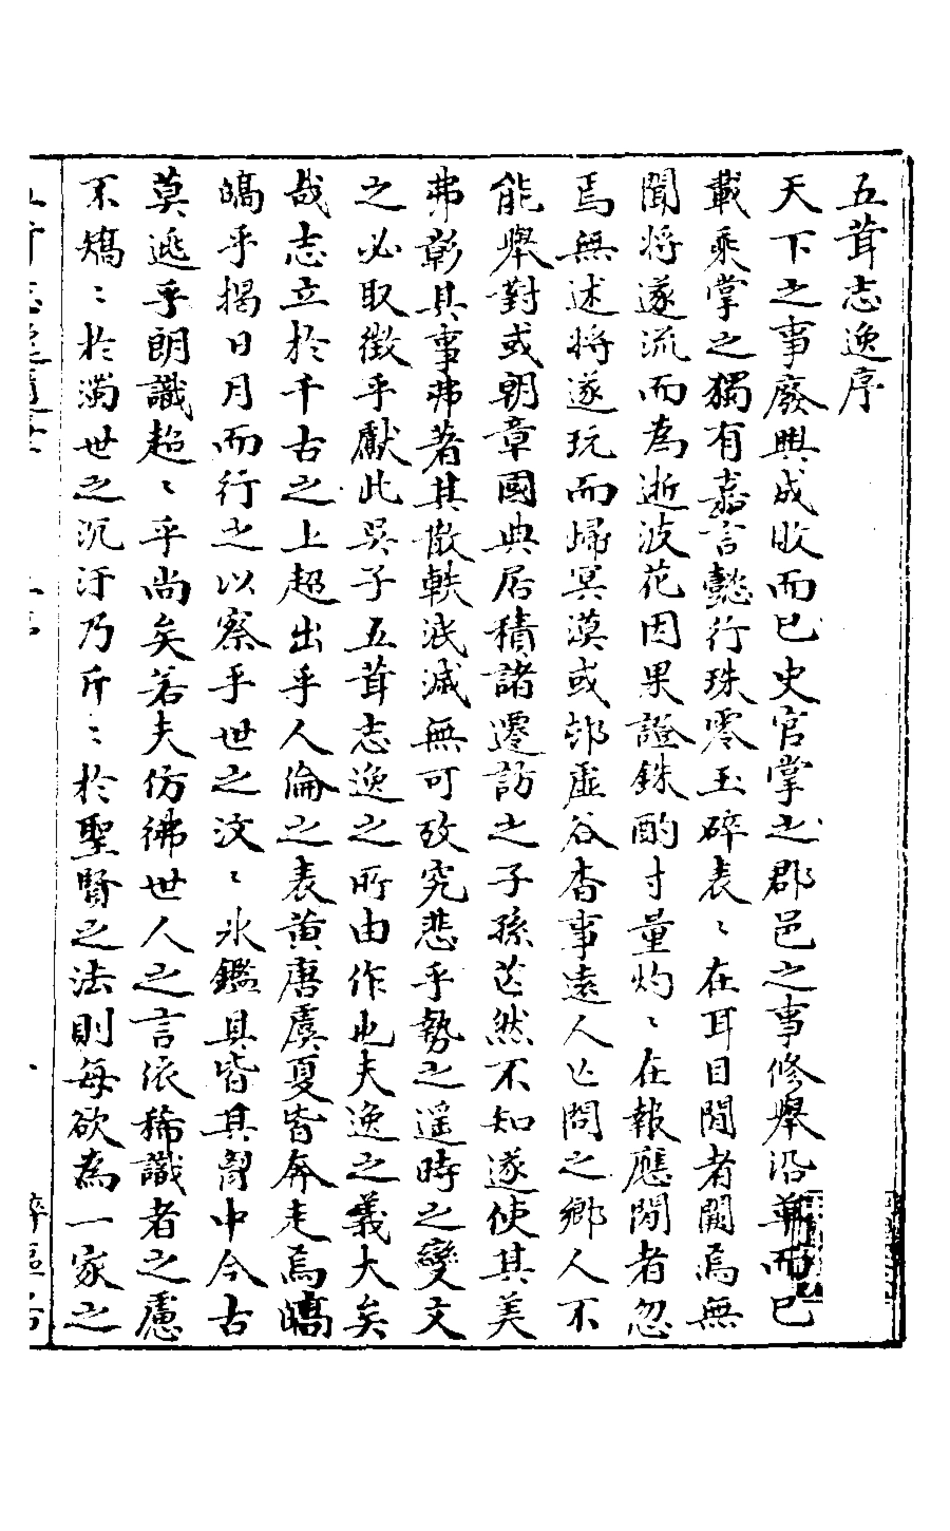 五茸志逸序
天下之事廢興成敗而已史官掌之郡邑之事修舉沿革而已
載乘掌之獨有嘉言懿行珠零玉碎表〻在耳目閒者闕焉無
聞將遂流而為逝波花因果證銖酌寸量灼〻在報應閒者忽
焉無述將遂玩而歸冥漠或邨虛谷杳事遠人亡問之鄉人不
能舉對或朝章國典居積諸遷訪之子孫茫然不知遂使其美
弗彰其事弗著其散軼泯滅無可攷究悲乎勢之遥時之變文
之必取徵乎獻此吳子五茸志逸之所由作也夫逸之義大矣
哉志立於千古之上超出乎人倫之表黄唐虞夏皆奔走焉皜
皜乎揭日月而行之以察乎世之汶〻氷鑑具皆其胷中今古
莫逃乎朗識超〻乎尚矣若夫仿彿世人之言依稀識者之慮
不矯〻於濁世之沉汙乃斤〻於聖賢之法則每欲為一家之